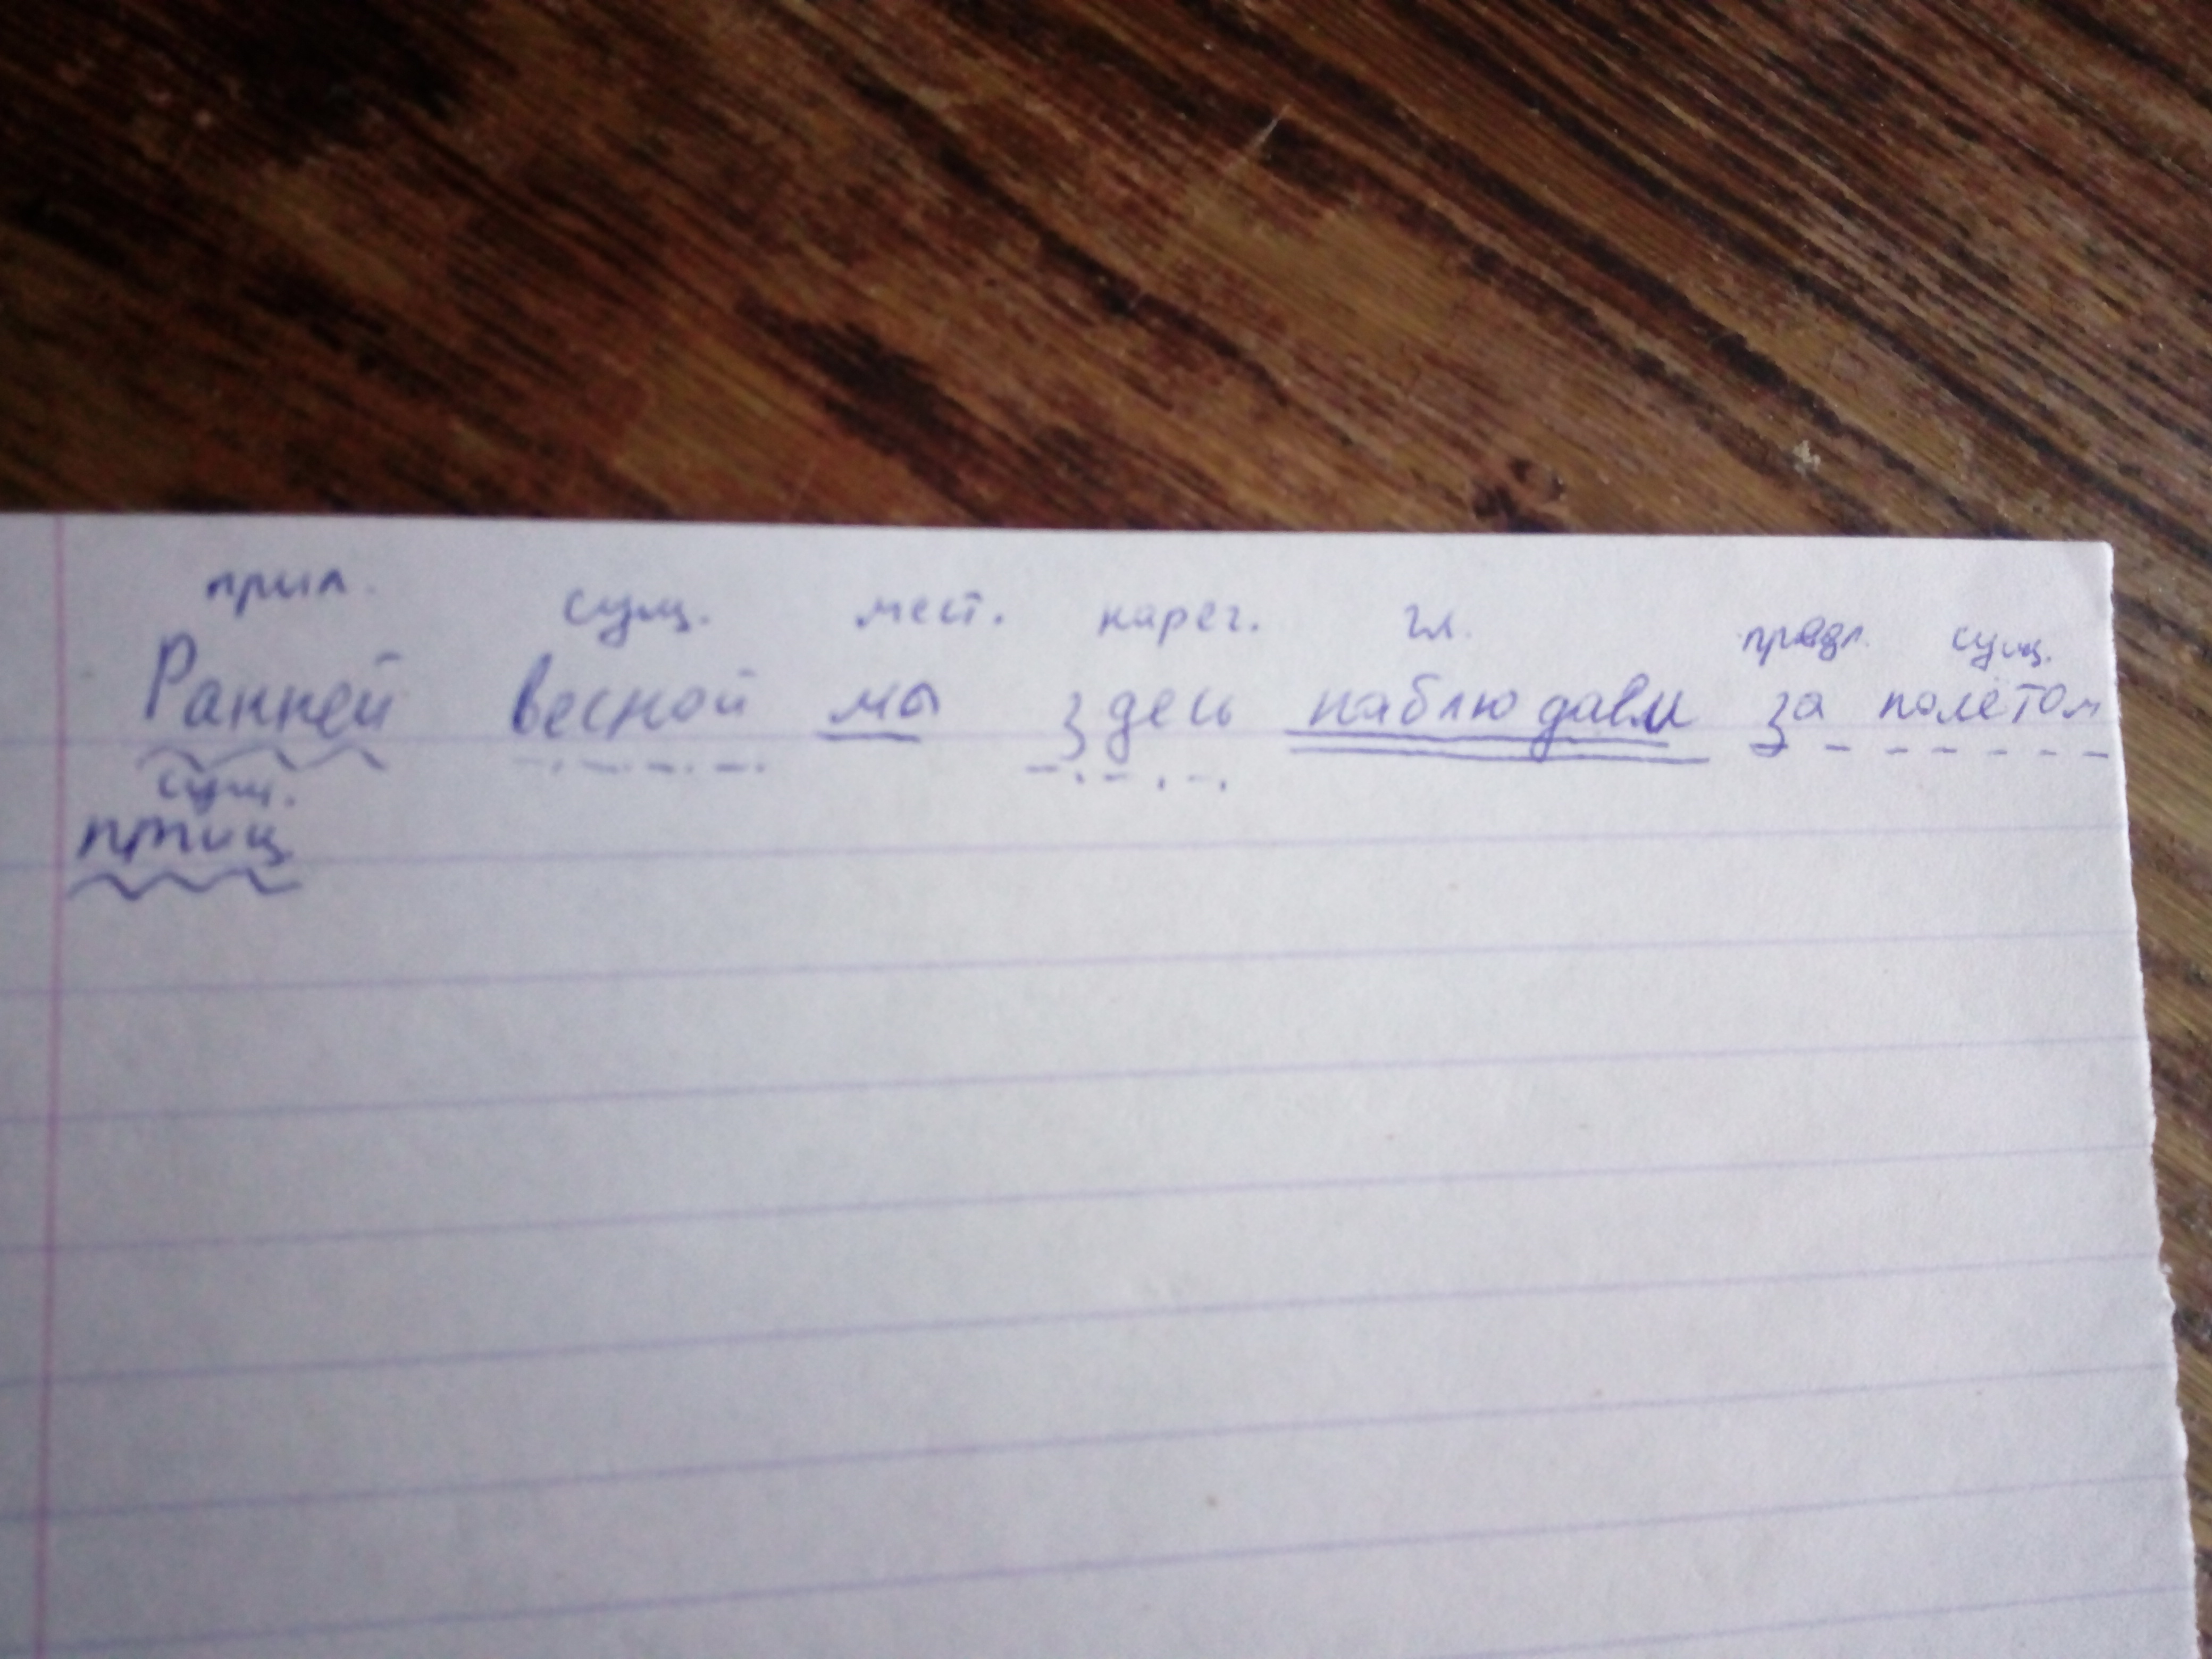 прил. сущ. мест. нареч. гл. предл. сущ.
Ранней весной мы здесь наблюдали за полётом
сущ.
птиц